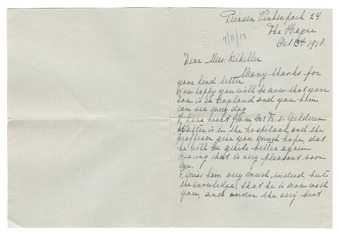 24
The Hague
Oct 1918.
Dear Mrs.
Many thanks for
your kind letter
How happy you will be now that your
son is in England and you him
can see every day
I have heard from Mr
Walter is in the hospital, and the
professor give you much hope, dat
he will be quite better again
Hearing that is very pleasant voor
you.
I miss him very much indeed but
the knowledge, that he is now with
you, and under the very best